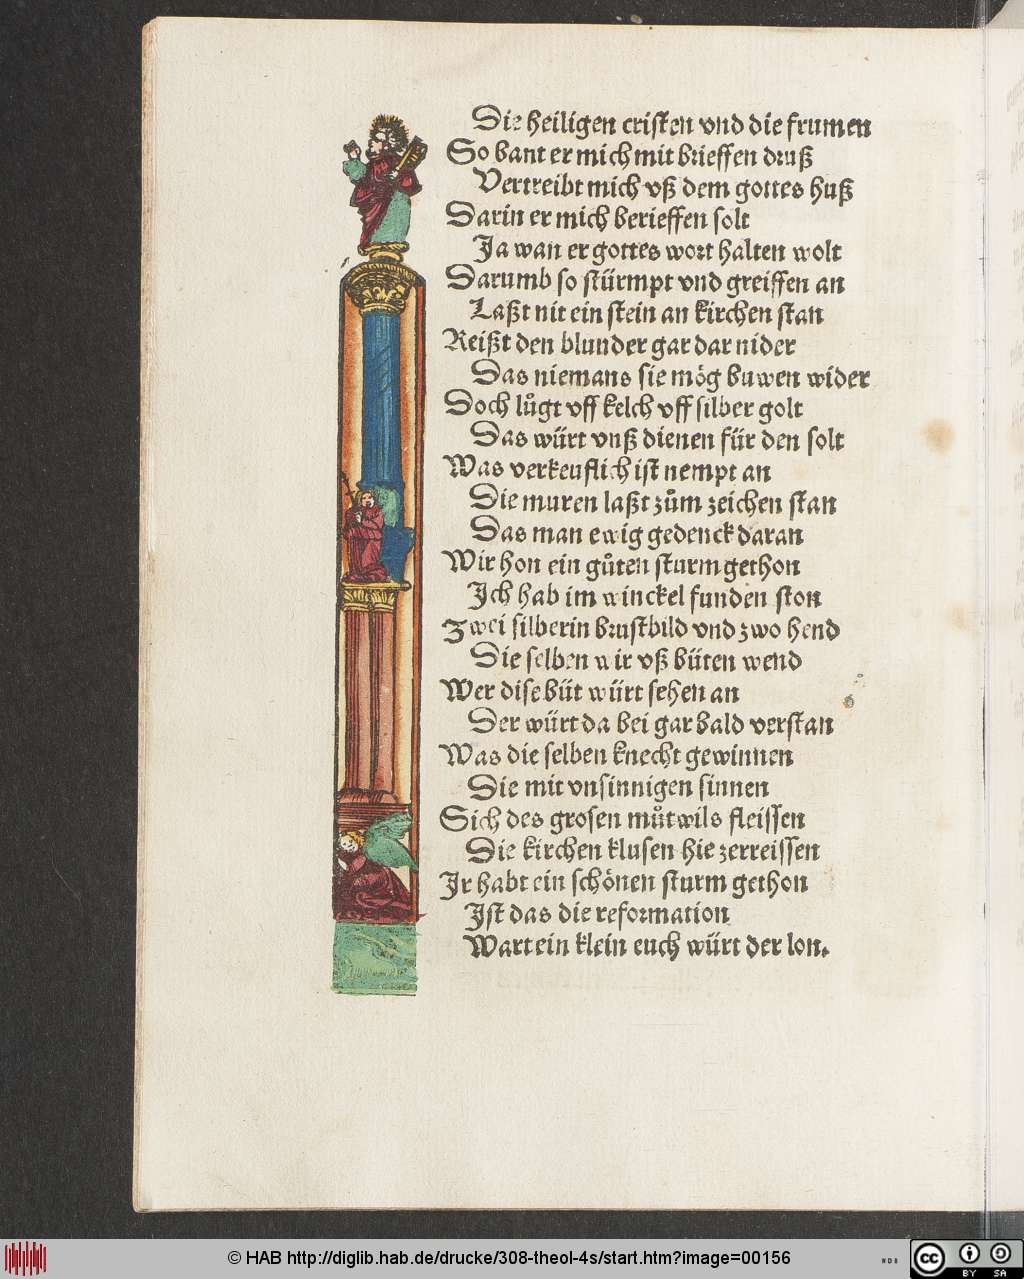 Die heiligen cristen vnd die frumen
So bant er mich mit brieffen druß
Vertreibt mich vß dem gottes huß
Darin er mich berieffen solt
Ja wan er gottes wort halten wolt
Darumb so stürmpt vnd greiffen an
Laßt nit ein stein an kirchen stan
Reißt den blunder gar dar nider
Das niemans sie mög buwen wider
Doch lůgt vff kelch vff silber golt
Das würt vnß dienen für den solt
Was verkeuflich ist nempt an
Die muren laßt zům zeichen stan
Das man ewig gedenck daran
Wir hon ein gůten sturm gethon
Ich hab im winckel funden ston
Zwei silberin brustbild vnd zwo hend
Die selben wir vß büten wend
Wer dise büt würt sehen an
Der würt da bei gar bald verstan
Was die selben knecht gewinnen
Die mit vnsinnigen sinnen
Sich des grosen můtwils fleissen
Die kirchen klusen hie zerreissen
Ir habt ein schönen sturm gethon
Ist das die reformation
Wart ein klein euch würt der lon.
© HAB http://diglib.hab.de/drucke/308-theol-4s/start.htm?image=00156
WDB
cc BY SA